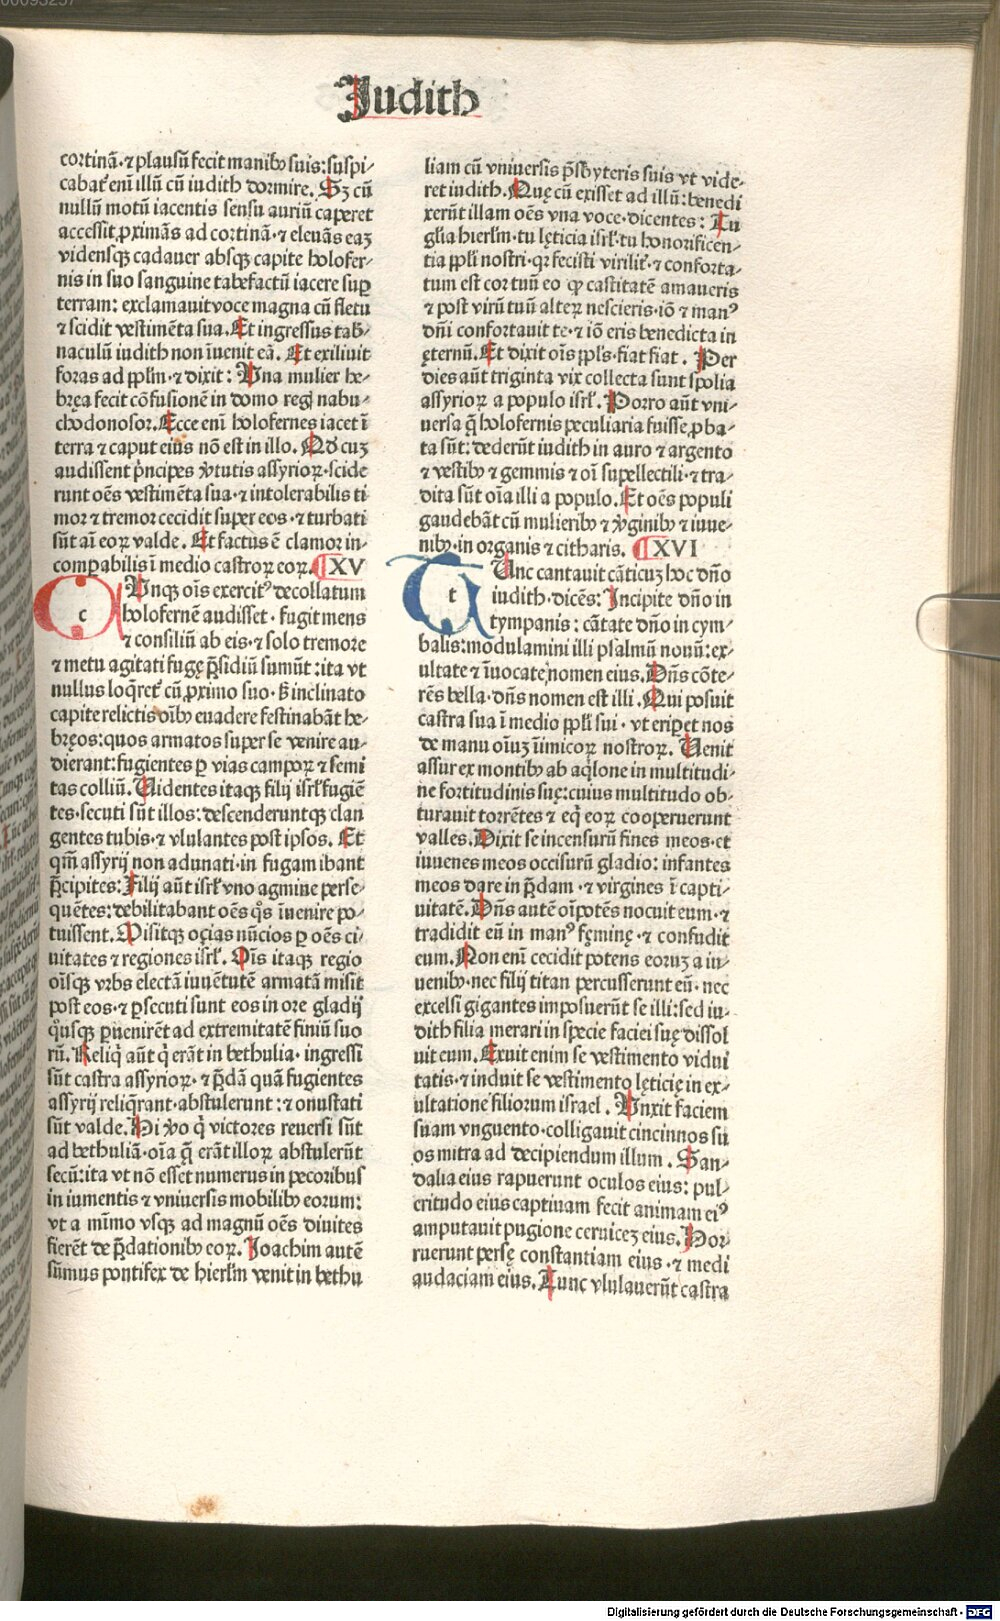 Judith
cortinā·⁊ plausū fecit manibꝰ suis:suspi⸗
cabat᷑ enī illū cū iudith dormire. Sꝫ cū
nullū motū iacentis sensu auriū caperet
accessit ꝓximās ad cortinā·⁊ eleuās eaꝫ
vidensqꝫ cadauer absqꝫ capite holofer⸗
nis in suo sanguine tabefactū iacere suꝑ
terram: exclamauit voce magna cū fletu
⁊ scidit vestimēta sua. Et ingressus tab⸗
naculū iudith non īuenit eā. Et exiliuit
foras ad pplm·⁊ dixit: Una mulier he⸗
bręa fecit cōfusionē in domo reg nabu⸗
chodonosor. Ecce enī holofernes iacet ī
terra ⁊ caput eius nō est in illo. Qd cuꝫ
audissent prīncipes v̓tutis assyrioꝝ·scide
runt oēs vestimēta sua·⁊ intolerabilis ti
mor ⁊ tremor cecidit super eos·⁊ turbati
sūt aī eoꝝ valde. Et factus ē clamor in⸗
comꝑabilis ī medio castroꝝ eoꝝ. ¶ XV
c Unqꝫ oīs exercitꝰ decollatum
holofernē audisset·fugit mens
⁊ consiliū ab eis·⁊ solo tremore
⁊ metu agitati fugę p̄sidiū sumūt:ita vt
nullus loq̄ret᷑ cū ꝓximo suo·ſꝫ inclinato
capite relictis oībꝰ euadere festinabāt he⸗
bręos:quos armatos super se venire au⸗
dierant:fugientes ꝑ vias campoꝝ ⁊ semi
tas colliū. Uidentes itaqꝫ filij isrl fugiē
tes·secuti sūt illos:descenderuntqꝫ clan
gentes tubis·⁊ vlulantes post ipsos. Et
qm̄ assyrij non adunati·in fugam ibant
p̄cipites: Filij aūt isrl vno agmine perse⸗
quētes:debilitabant oēs q̊s īuenire po⸗
tuissent. Misitqꝫ oçias nūcios ꝑ oēs ci⸗
uitates ⁊ regiones isrl. Oīs itaqꝫ regio
oīsqꝫ vrbs electā iuuētutē armatā misit
post eos·⁊ ꝑsecuti sunt eos in ore gladij
q̊usqꝫ ꝑuenirēt ad extremitatē finiū suo
rū. Reliq̇ aūt q̇ erāt in bethulia·ingressi
sūt castra assyrioꝝ·⁊ p̄dā quā fugientes
assyrij reliq̄rant·abstulerunt:⁊ onustati
sūt valde. Hi v̓o q̇ victores reuersi sūt
ad bethuliā·oīa q̄ erāt illoꝝ abstulerūt
secū:ita vt nō esset numerus in pecoribus
in iumentis ⁊ vniuersis mobilibꝰ eorum:
vt a mīmo vsqꝫ ad magnū oēs diuites
fierēt de p̄dationibꝰ eoꝝ. Joachim autē
sūmus pontifex de hierlm venit in bethu
liam cū vniuersis p̄sbyteris suis vt vide⸗
ret iudith. Quę cū exisset ad illū:benedi
xerūt illam oēs vna voce·dicentes: Tu
glīa hierlm·tu lęticia isrl·tu honorificen⸗
tia ppli nostri·qꝛ fecisti virilit᷑·⁊ conforta⸗
tum est cor tuū eo ꝙ castitatē amaueris
⁊ post virū tuū alteꝝ nescieris·iō ⁊ manꝰ
dn̄i confortauit te·⁊ iō eris benedicta in
ęternū. Et dixit oīs ppls·fiat fiat. Per
dies aūt triginta vix collecta sunt spolia
assyrioꝝ a populo isrl. Porro aūt vni⸗
uersa q̄ holofernis peculiaria fuisse ꝓba⸗
ta sūt:dederūt iudith in auro ⁊ argento
⁊ vestibꝰ ⁊ gemmis ⁊ oī supellectili·⁊ tra⸗
dita sūt oīa illi a populo. Et oēs populi
gaudebāt cū mulieribꝰ ⁊ v̓ginibꝰ ⁊ iuue⸗
nibꝰ·in organis ⁊ citharis. ¶ XVI
t Unc cantauit cāticuꝫ hoc dn̄o
iudith·dicēs: Incipite dn̄o in
tympanis:cātate dn̄o in cym⸗
balis:modulamini illi psalmū nouū:ex⸗
ultate ⁊ īuocate nomen eius. Dn̄s cōte⸗
rēs bella·dn̄s nomen est illi. Qui posuit
castra sua ī medio ppli sui·vt eriꝑet nos
de manu oīuꝫ īimicoꝝ nostroꝝ. Uenit
assur ex montibꝰ ab aq̇lone in multitudi⸗
ne fortitudinis suę:cuius multitudo ob⸗
turauit torrētes ⁊ eq̇ eoꝝ cooperuerunt
valles. Dixit se incensurū fines meos·et
iuuenes meos occisurū gladio:infantes
meos dare in p̄dam·⁊ virgines ī capti⸗
uitatē. Dn̄s autē oīpotēs nocuit eum·⁊
tradidit eū in manꝰ fęminę·⁊ confudit
eum. Non enī cecidit potens eoruꝫ a iu⸗
uenibꝰ·nec filij titan percusserunt eū·nec
excelsi gigantes imposuerūt se illi:sed iu⸗
dith filia merari in specie faciei suę dissol
uit eum. Exuit enim se vestimento vidui
tatis·⁊ induit se vestimento lęticię in ex⸗
ultatione filiorum israel. Unxit faciem
suam vnguento·colligauit cincinnos su
os mitra ad decipiendum illum. San⸗
dalia eius rapuerunt oculos eius:pul⸗
critudo eius captiuam fecit animam eiꝰ
amputauit pugione ceruiceꝫ eius. Hor
ruerunt persę constantiam eius·⁊ medi
audaciam eius. Tunc vlulauerūt castra
Digitalisierung gefördert durch die Deutsche Forschungsgemeinschaft - DFG